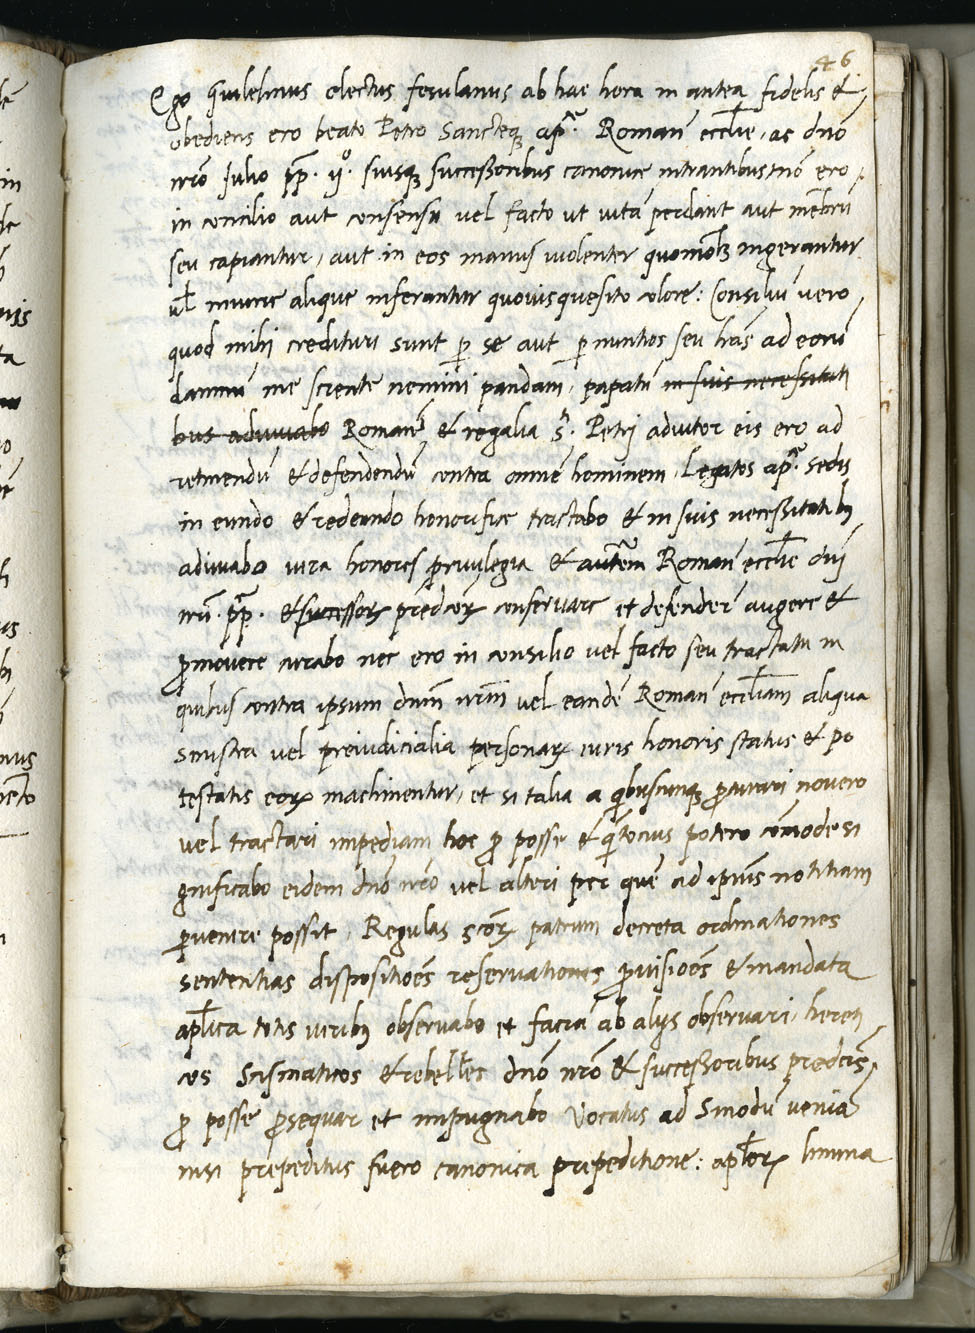 46
Ego Guilelmus electus fesulanus ab hac hora in antea fidelis &
obediens ero beato Petro Sancteq₃ apᶜᵃ. Roman̄ eccl̄ie, ac dn̄o
nr̄o Julio pp̄. ijº. suisq₃ successoribus canonice intrantibus nō ero,
in concilio aut consensu vel facto ut vitā perdant aut mēbrū
seu capiantur, aut in eos manus violenter quomōl₃ ingerantur
ul̄ iniurie alique inferantur quovis quesito colore: Consiliū vero
quod mihi credituri sunt p̄ se aut p̄ nuntios seu lr̄as ad eorū
damnū me sciente nemini pandam, papatū in suis necessitati
bus adiuvabo Roman̄ & regalia s̄. Petri adiutor eis ero ad
retinendū & defendendū contra omnē hominem, Legatos apᶜᵃ. sedis
in eundo & redeundo honorifice tractabo & in suis necessitatib₃
adiuvabo iura honores privilegia & auctem Roman̄ eccl̄ie dn̄i
nr̄i. pp̄. & successorꝝ predcōrꝝ conservare et defender̄ augere &
ꝓmovere curabo nec ero in consilio vel facto seu tractatu in
quibus contra ipsum dnm̄ nrm̄ vel eandē Roman̄ eccl̄iam aliqua
sinistra vel preiudicialia personarꝝ iuris honoris status & po
testatis eorꝝ machinentur, et si talia a qūibuscunq₃ ꝓcurari novero
vel tractari impediam hoc ꝓ posse & qñtocius potero cōmode si
gnificabo eidem dn̄o nr̄o vel alteri per quē ad ipsius notitiam
ꝑvenire possit, Regulas scōrꝝ patrum decreta ordinationes
sententias dispositiōes reservationes ꝓvisiōes & mandata
apl̄ica totis virib₃ observabo et faciā ab alijs observari, hereti
cos Scismaticos & rebelles dn̄o nr̄o & successoribus predcis̄,
ꝓ posse ꝓsequar et impugnabo Vocatus ad Sinodū veniā
nisi prepeditus fuero canonica prepeditione: apl̄orꝝ limina